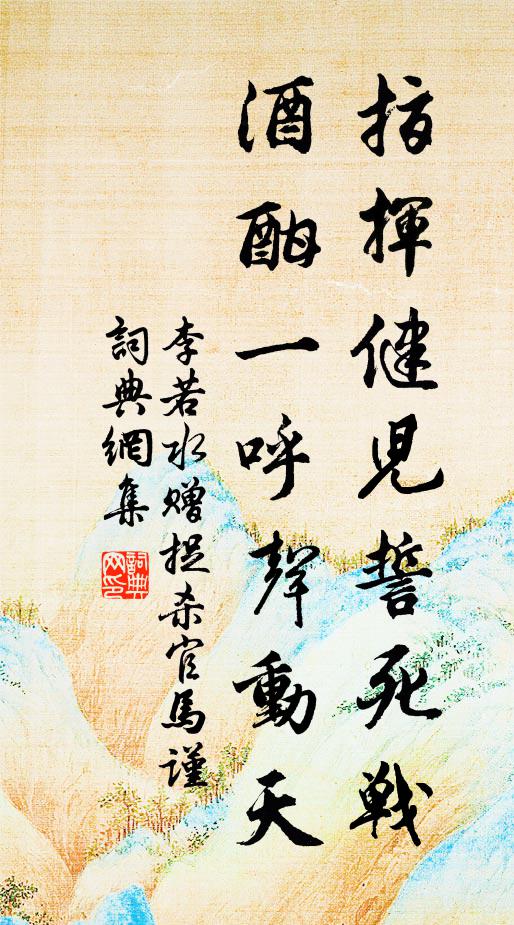 指揮健兒誓死戰
酒酣一呼聲動天
李若水贈捉杀官馬謹
詞典網集
詞典
网印